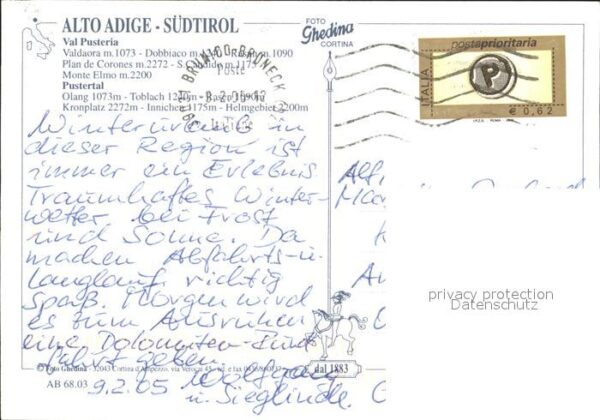 ALTO ADIGE - SÜDTIROL
Val Pusteria
Valdaora m.1073 - Dobbiaco m.1240 m.1090
Plan de Corones m.2272 - S. Candido m.1175
Monte Elmo m.2200
Pustertal
Olang 1073m - Toblach 1240m
Kronplatz 2272m - Innichen 1175m - Helmgebiet 2200m
FOTO
Ghedina
CORTINA
BRUNICO BRUNECK
Poste
8.2.05
postaprioritaria
P
ITALIA
€ 0,62
Winterurlaub in
dieser Region ist
immer ein Erlebnis
Traumhaftes Winter-
wetter bei Frost
und Sonne. Da
machen Abfahrts-u.
Langlauf richtig
Spaß. Morgen wird
es zum Ausruhen
eine Dolomiten-Rund
fahrt geben.
9.2.05 Wolfgang
u. Sieglinde
© Foto Ghedina - 32043 Cortina d'Ampezzo
AB 68.03
dal 1883
Alf
privacy protection
Datenschutz